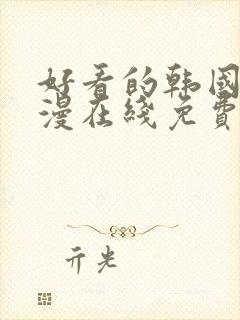 好看的韩国
漫在线免費
亓光